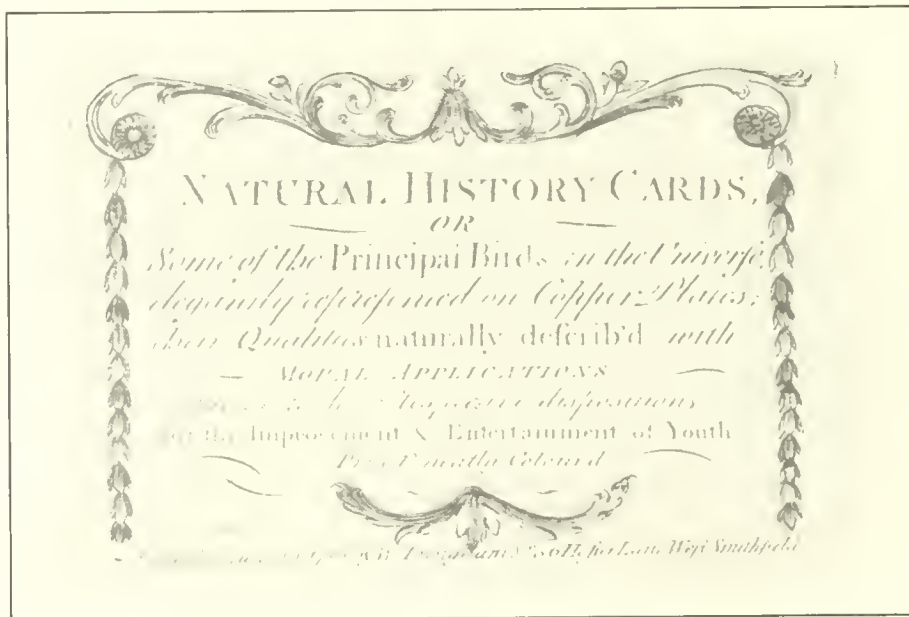 NATURAL HISTORY CARDS,
OR
Some of the Principal Birds in the Univerſe,
elegantly repreſented on Copper-Plates;
their Qualities naturally deſcrib'd with
MORAL APPLICATIONS
to their reſpective dispositions
for the Improvement & Entertainment of Youth
Price neatly Colour'd
Lane Weſt Smithfield